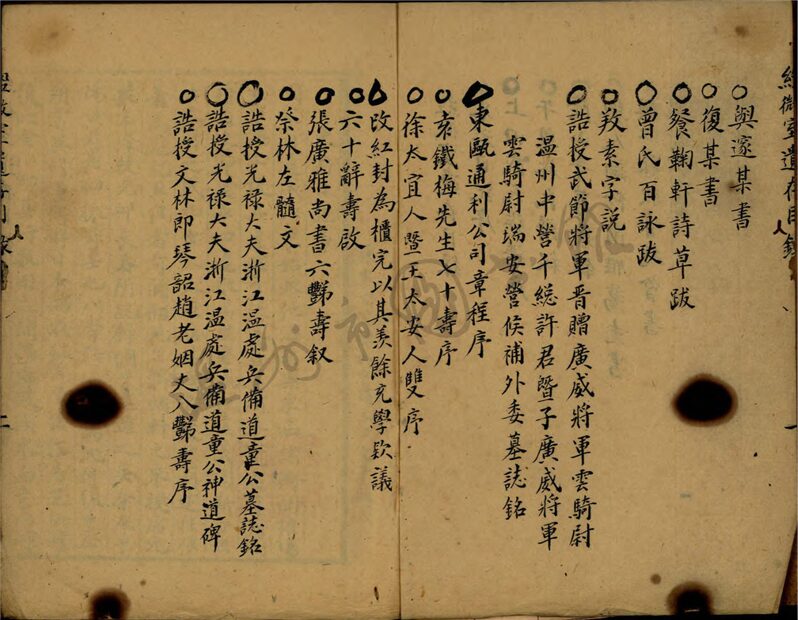 與邃某書
復某書
餐鞠軒詩草跋
曾氏百詠跋
敩素字說
誥授武節將軍晋贈廣威將軍雲騎尉
温州中營千総許君暨子廣威將軍
雲騎尉瑞安營候補外委墓誌銘
東甌通利公司章程序
袁鐵梅先生七十壽序
徐太宜人暨王太安人雙序
改紅封為櫃完以其羨餘充學欵議
六十辭壽啟
張廣雅尚書六豑壽叙
祭林左髓文
誥授光禄大夫浙江温處兵備道童公墓誌銘
誥授光禄大夫浙江温處兵備道童公神道碑
誥授文林郎琴韶趙老姻丈八豑壽序